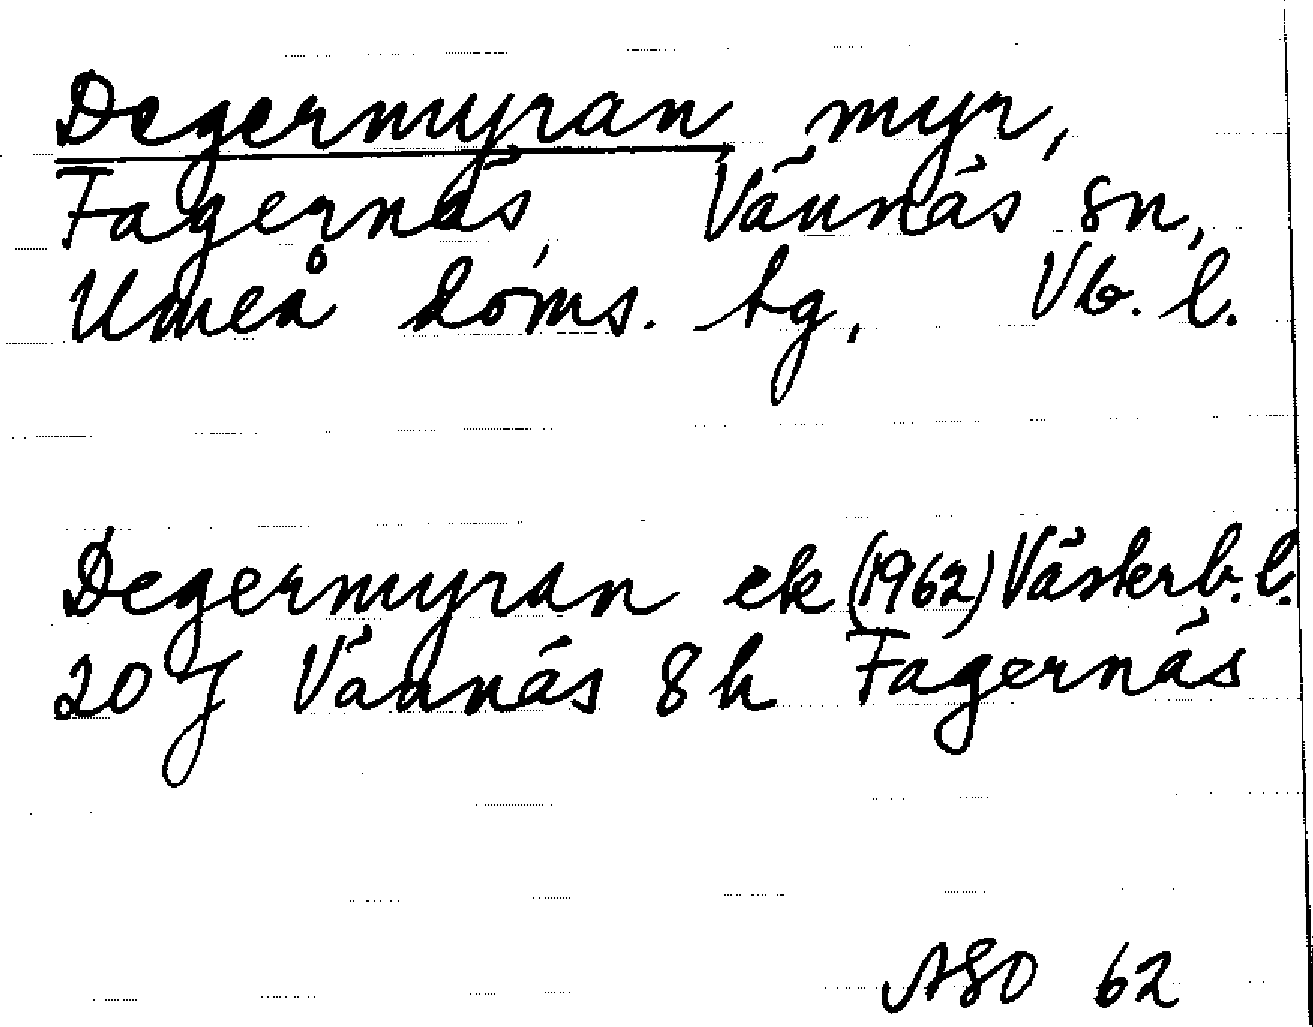 Degermyran myr,
Fagernäs, Vännäs sn,
Umeå doms. tg, Vb. l.
Degermyran ek (1962) Västerb. l.
20 J Vännäs 8 h Fagernäs
ASO 62